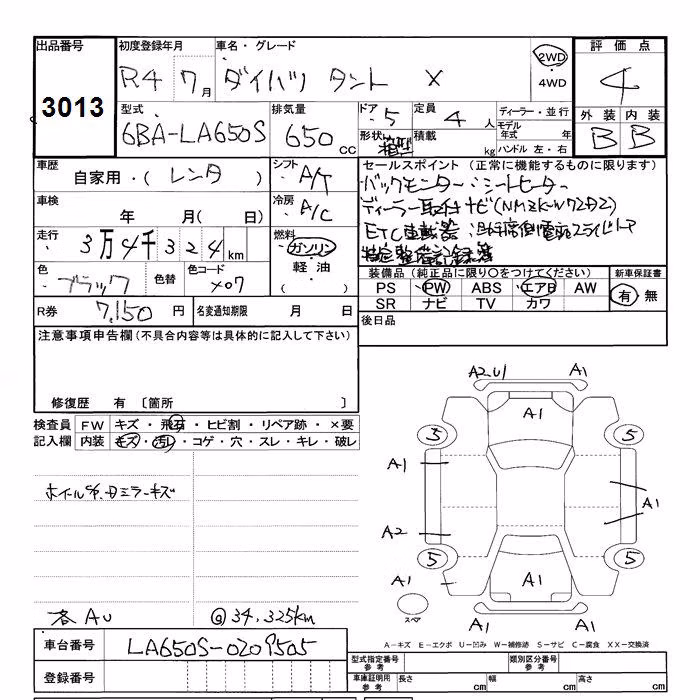 出品番号 初度登録年月 車名・グレード 評価点
3013 R4 7月 ダイハツ タント X 2WD ・ 4WD 4
型式 排気量 ドア 定員 ディーラー・並行 外装 内装
6BA-LA650S 650cc 5 4人 モデル年式 年 B B
形状 箱型 積載 kg ハンドル 左・右
車歴 シフト セールスポイント (正常に機能するものに限ります)
自家用・( レンタ ) A/T バックモニター・シートヒーター
車検 冷房 ディーラー取付ナビ(NMZK-W72D2)
年 月( 日) A/C ETC車載器・助手席側電動スライドドア
走行 燃料 特定整備記録簿
3万4千324km ガソリン・軽油・( )
色 色替 色コード 装備品 (純正品に限り○をつけてください) 新車保証書
ブラック X07 PS PW ABS エアB AW 有 無
SR ナビ TV カワ
R券 7,150円 名変通知期限 月 日 後日品
注意事項申告欄 (不具合内容等は具体的に記入して下さい)
修復歴 有 〔箇所 〕
検査員 FW キズ・飛石・ヒビ割・リペア跡・×要
記入欄 内装 キズ・汚レ・コゲ・穴・スレ・キレ・破レ
A2.U1 A1
A1
5 5
A1
ホイールS,Dミラーキズ
A1
A2
5 5
A1 A1
スペア
A1
各AU @34,325km
A−キズ E−エクボ U−凹み W−補修跡 S−サビ C−腐食 XX−交換済
車台番号 LA650S-0209505
型式指定番号 参考 類別区分番号 参考
登録番号 車庫証明用 参考 長さ cm 幅 cm 高さ cm